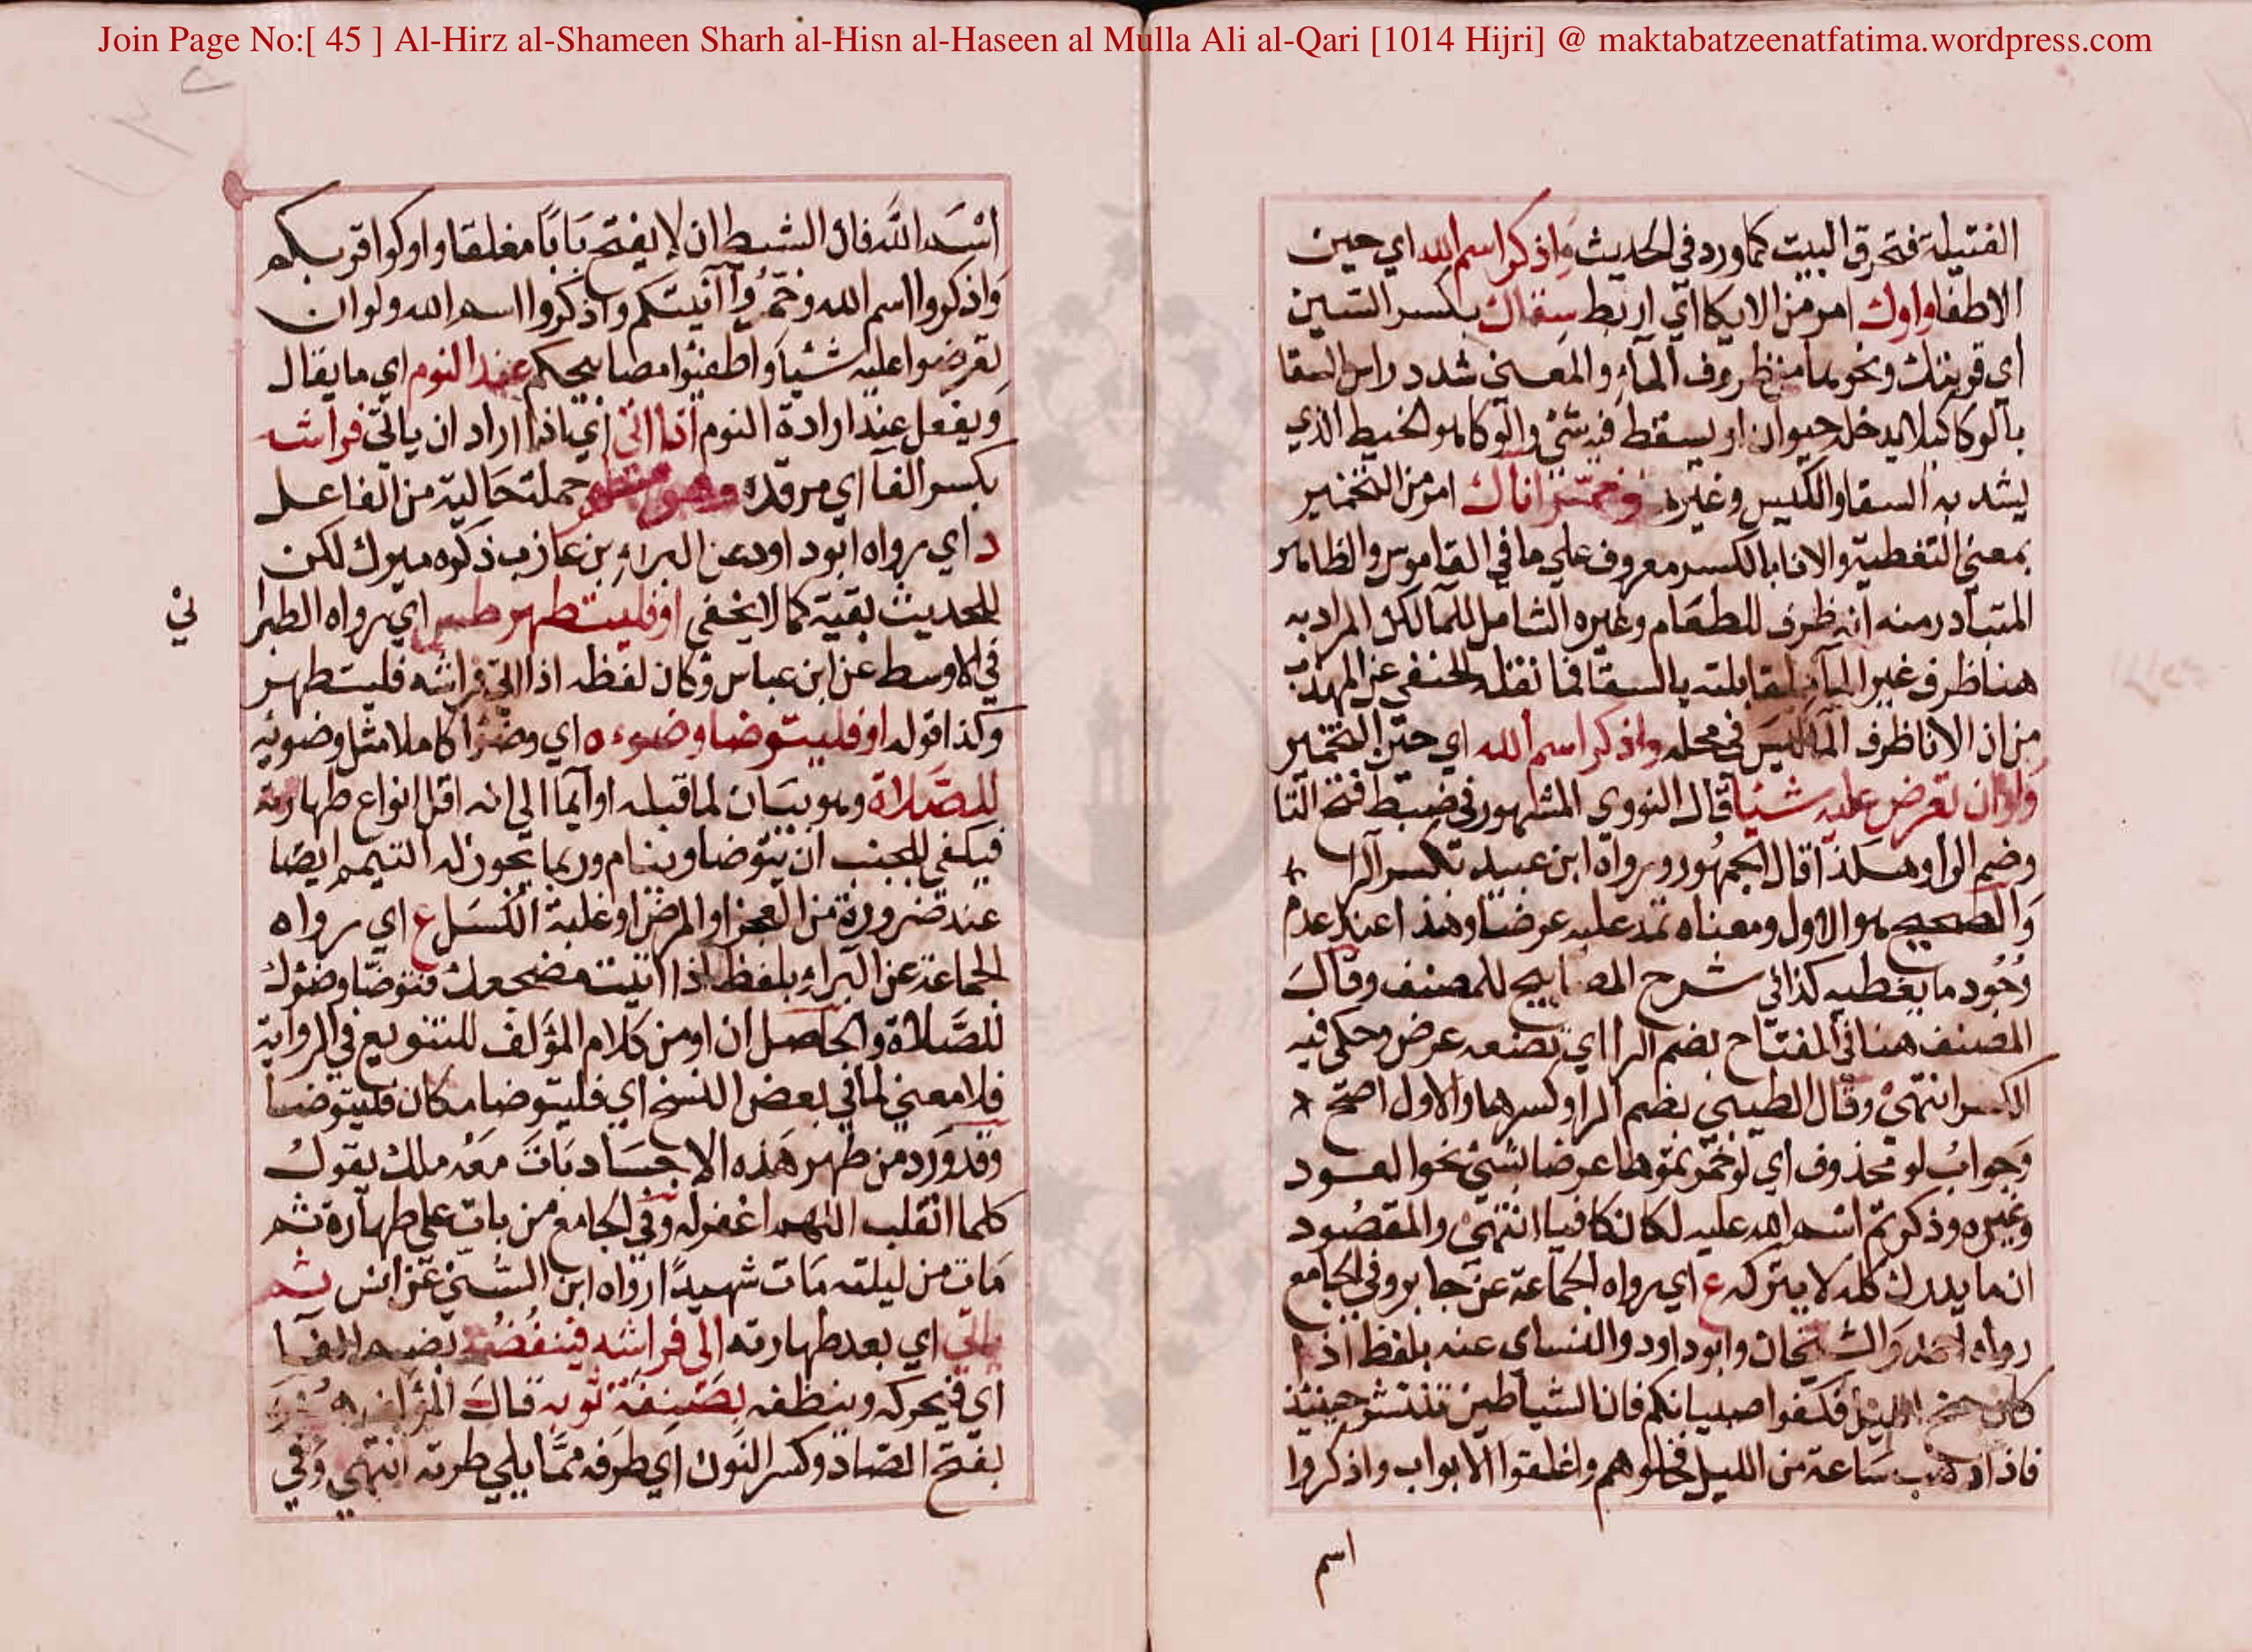 Join Page No:[ 45 ] Al-Hirz al-Shameen Sharh al-Hisn al-Haseen al Mulla Ali al-Qari [1014 Hijri] @ maktabatzeenatfatima.wordpress.com
الفتيلة فتحرق البيت كما ورد في الحديث واذكر اسم الله اي حين
الاطفا واوك امر من الايكا اي اربط سقاك بكسر السين
اي قربتك ونحوها من ظروف الماء والمعنى شدد راس السقا
بالوكا كيلا يدخله حيوان او يسقط فيه شئ والوكا هو الخيط الذي
يشد به السقا والكيس وغيره وخمر اناك امر من التخمير
بمعنى التغطية والانا بالكسر معروف على ما في القاموس والظاهر
المتبادر منه انه ظرف للطعام وغيره الشامل للما لكن المراد به
هنا ظرف غير الماء لمقابلته بالسقا فما نقله الحنفي عن المهذب
من ان الانا ظرف الما ليس في محله واذكر اسم الله اي حين التخمير
ولو ان تعرض عليه شيئا قال النووي المشهور في ضبط فتح التا
وضم الرا وهكذا قال الجمهور ورواه ابن عبيد بكسر الرا
والصحيح هو الاول ومعناه تمد عليه عرضا وهذا عند عدم
وجود ما يغطيه كذا في شرح المصابيح للمصنف وقال
المصنف هنا في المفتاح بضم الرا اي تضعه عرض وحكي فيه
الكسر انتهى وقال الطيبي بضم الرا وكسرها والاول اصح
وجواب لو محذوف اي لو خمرتموها عرضا بشئ نحو العود
وغيره وذكرتم اسم الله عليه لكان كافيا انتهى والمقصود
ان ما يدرك كله لا يترك كله ع اي رواه الجماعة عن جابر وفي الجامع
رواه احمد والشيخان وابو داود والنساى عنه بلفظ اذا
كان جنح الليل فكفوا صبيانكم فان الشياطين تنتشر حينئذ
فاذا ذهب ساعة من الليل فخلوهم واغلقوا الابواب واذكروا
اسم
اسم الله فان الشيطان لا يفتح بابا مغلقا واوكوا قربكم
واذكروا اسم الله وخمروا آنيتكم واذكروا اسم الله ولو ان
تعرضوا عليه شيئا واطفئوا مصابيحكم عند النوم اي ما يقال
ويفعل عند ارادة النوم اذا اتى اي اذا اراد ان ياتي فراشه
بكسر الفا اي مرقده وهو متطهر جملة حالية من الفاعل
د اي رواه ابو داود عن البراء بن عازب ذكره ميرك لكن
للحديث بقية كما لا يخفى او فليتطهر طس اي رواه الطبرا
ني
في الاوسط عن ابن عباس وكان لفظه اذا اتى فراشه فليتطهر
وكذا قوله او فليتوضا وضوءه اي وضؤا كاملا مثل وضوئه
للصلاة وهو بيان لما قبله او ايما الى انه اقل انواع طهارته
فيكفي للجنب ان يتوضا وينام وربما يجوز له التيمم ايضا
عند ضرورة من العجز او المرض او غلبة الكسل ع اي رواه
الجماعة عن البراء بلفظ اذا اتيت مضجعك فتوضا وضؤك
للصلاة والحاصل ان او من كلام المؤلف للتنويع في الرواية
فلا معنى لما في بعض النسخ اي فليتوضا مكان فليتوضا
وقد ورد من طهر هذه الاجساد بات معه ملك يقول
كلما انقلب اللهم اغفر له وفي الجامع من بات على طهارة ثم
مات من ليلته مات شهيدا رواه ابن السني عن انس ثم
ياتي اي بعد طهارته الى فراشه فينفضه بضم الفا
اي فيحركه وينظفه بصنفة ثوبه قال المؤلف هو
بفتح الصاد وكسر النون اي طرفه مما يلي طرته انتهى وفي